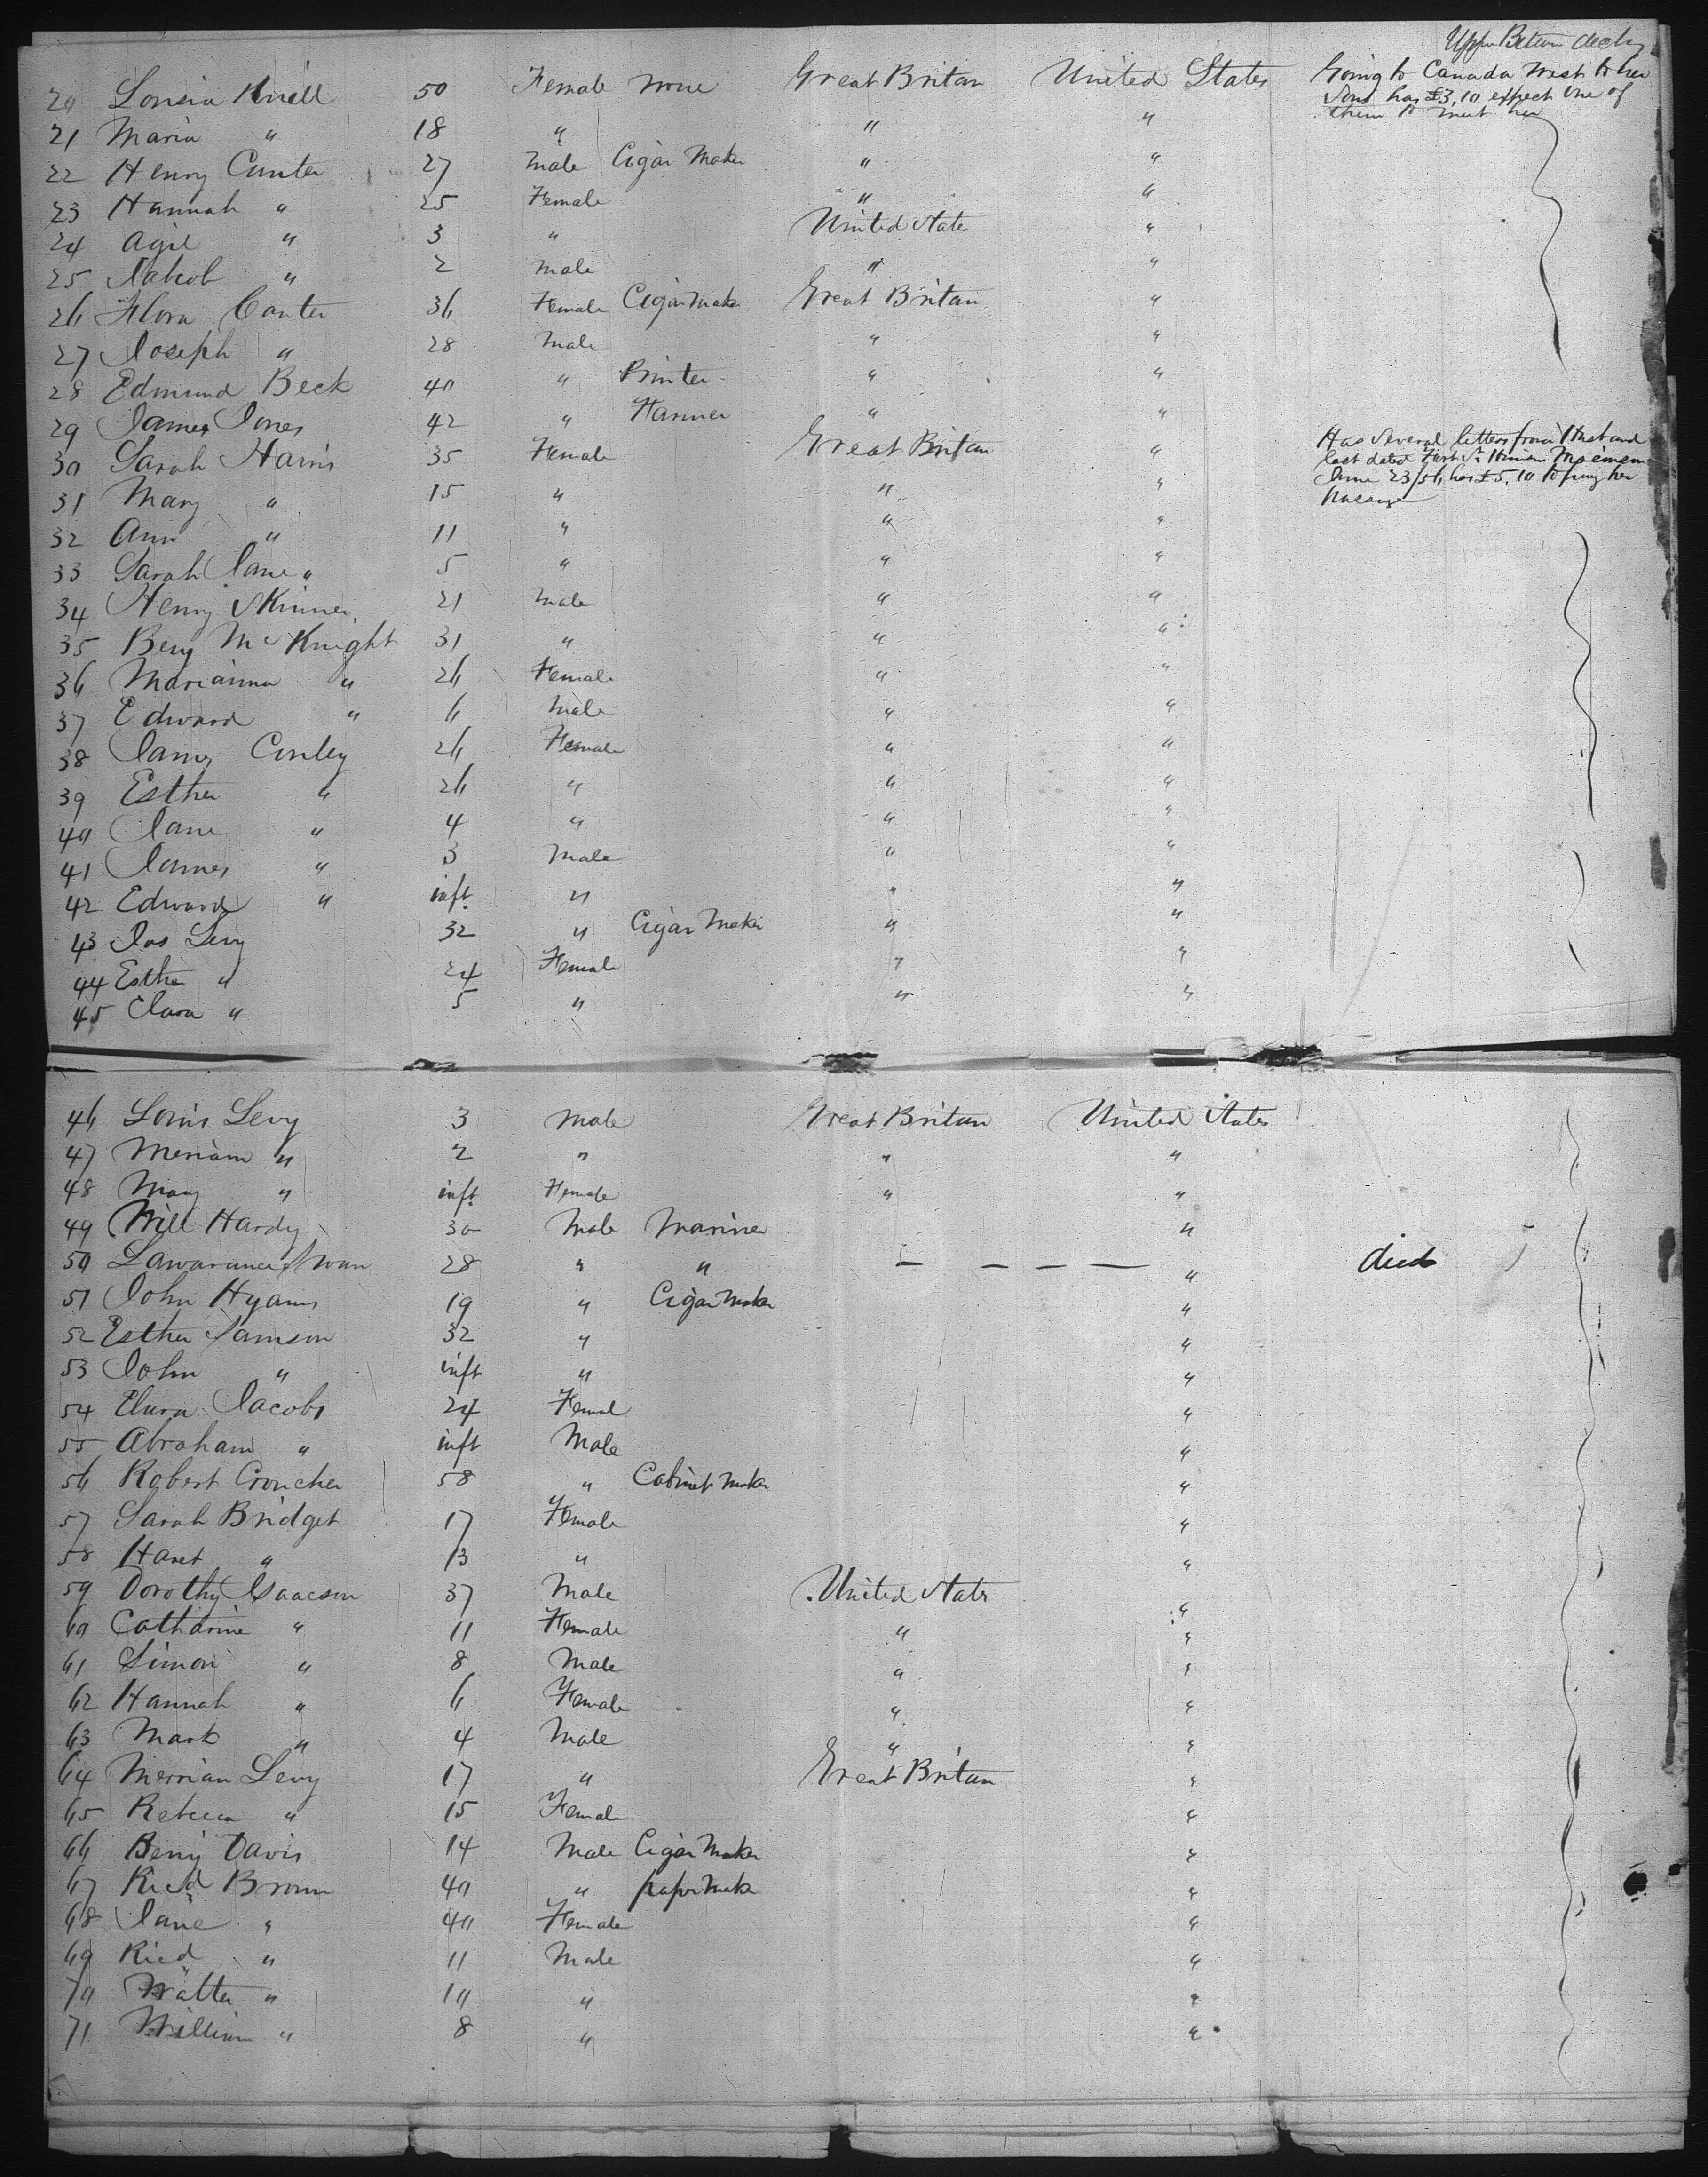 Upper Between decks
20 Louisa Knell 50 Female None Great Britan United States Going to Canada West to her
Sons has £3.10 expect one of
them to meet her
21 Maria " 18 " " "
22 Henry Cunter 27 Male Cigar Maker " "
23 Hannah " 25 Female " "
24 Agie " 3 " United State "
25 Jakob " 2 Male " "
26 Flora Canter 36 Female Cigar Maker Great Britan "
27 Joseph " 28 Male " "
28 Edmund Beck 40 " Printer " "
29 James Jones 42 " Farmer " "
30 Sarah Harris 35 Female Great Britan " Has several letters from Husband
last dated June 23/56 has £5.10 to
31 Mary " 15 " " "
32 Ann " 11 " " "
33 Sarah Jane " 5 " " "
34 Henry Skinner 21 Male " "
35 Benj McKnight 31 " " "
36 Marianna " 26 Female " "
37 Edward " 6 Male " "
38 James Conley 26 Female " "
39 Esther " 26 " " "
40 Jane " 4 " " "
41 James " 3 Male " "
42 Edward " inft " " "
43 Jos Levy 32 " Cigar Maker " "
44 Esther " 24 Female " "
45 Clara " 5 " " "
46 Louis Levy 3 Male Great Britan United States
47 Meriam " 2 " " "
48 Mary " inft Female " "
49 Will Hardy 30 Male Mariner "
50 Lawarance Swan 28 " " — — — — " died
51 John Hyams 19 " Cigar Maker "
52 Esther Samson 32 " "
53 John " inft " "
54 Clara Jacobs 24 Femal "
55 Abraham " inft Male "
56 Robert Croucher 58 " Cabinet Maker "
57 Sarah Bridget 17 Female "
58 Haret " 13 " "
59 Dorothy Isaacson 37 Male United States "
60 Catharine " 11 Female " "
61 Simon " 8 Male " "
62 Hannah " 6 Female " "
63 Mark " 4 Male " "
64 Merrian Levy 17 " Great Britan "
65 Rebecca " 15 Female "
66 Benj Davis 14 Male Cigar Maker "
67 Ricd Brown 40 " paper Maker "
68 Jane " 40 Female "
69 Ricd " 11 Male "
70 Walter " 10 " "
71 William " 8 " "